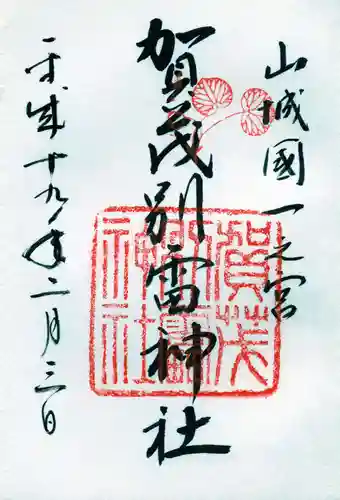 山城國一之宮
賀茂別雷神社
平成十九年二月三日
賀茂別雷神社